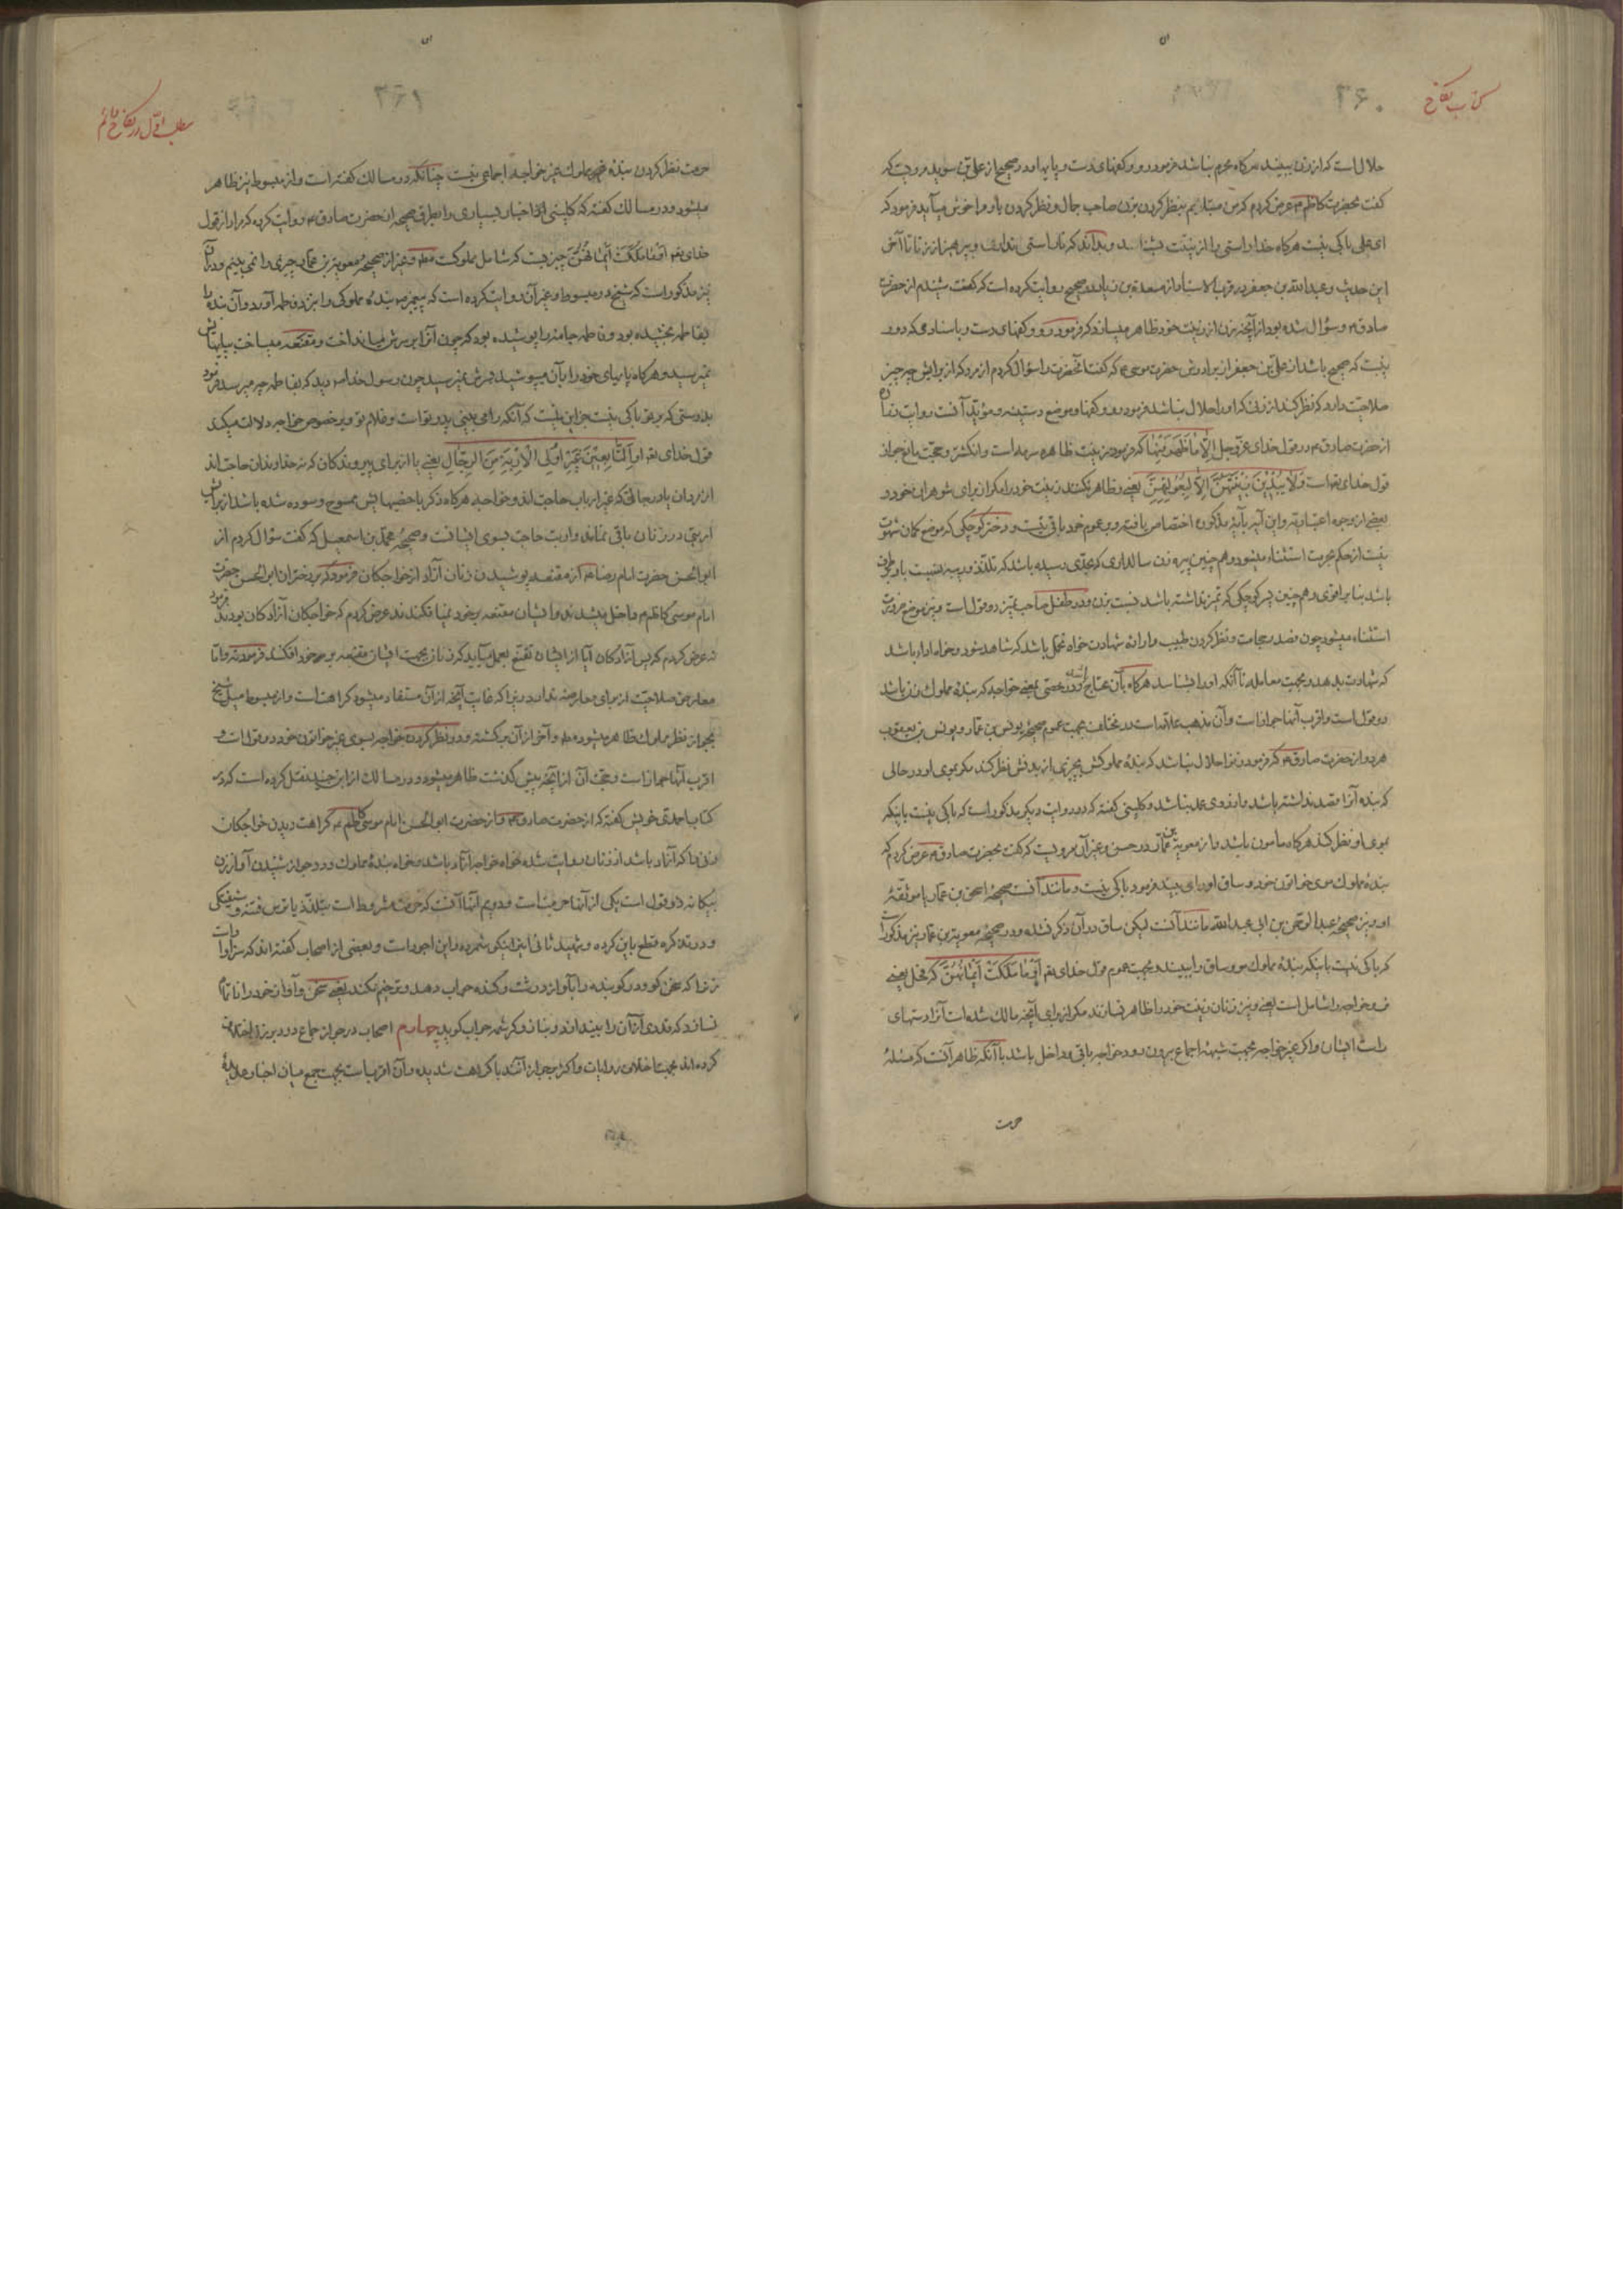 کتاب نکاح
۳۶۰
حلال است که از زن ببیند هرگاه محرم نباشد فرمود رو و کفهای دست و پایها و در صحیح از علی بن سوید مرویست که
گفت بحضرت کاظم ع عرض کردم که من مبتلایم بنظر کردن بزن صاحب جمال و نظر کردن باو مرا خوش میآید فرمود که
ای علی باکی نیست هرگاه خدا راستی را از نیتت بشناسد و بداند که ناراستی نداری و بپرهیز از زنا تا آخر
این حدیث و عبد الله بن جعفر در قرب الاسناد از مسعدة بن زیاد در صحیح روایت کرده است که گفت شنیدم از حضرت
صادق ع و سؤال شده بود از آنچه زن از زینت خود ظاهر میسازد که فرمود رو و کفهای دست و باسنادی که دور
نیست که صحیح باشد از علی بن جعفر از برادرش حضرت موسی ع که گفت آنحضرت را سؤال کردم از مرد که از برایش چه چیز
صلاحیت دارد که نظر کند از زنی که او را حلال نباشد فرمود رو و کفها و موضع دستینه و مؤید آنست روایت
از حضرت صادق ع در قول خدای عز و جل الا ما ظهر منها که فرمود زینت ظاهره سرمه است و انگشتر و حجت مانع جواز
قول خدای تعالی است ولا یبدین زینتهن الا لبعولتهن یعنی و ظاهر نکنند زینت خود را مگر از برای شوهران خود و
بعضی از وجوه اعتباریه و این آیه بآیه مذکوره اختصاص یافته و بر عموم خود باقی نیست و دختر کوچکی که موضع گمان شهوت
نیست از حکم حرمت استثناء میشود و هم چنین پیره زن سالداری که بحدی رسیده باشد که تلذذ و ریبه نسبت باو
باشد بنا بر اقوی و هم چنین پسر کوچکی که تمیز نداشته باشد نسبت بزن و در طفل صاحب تمیز دو قول است و نیز موضع ضرورت
استثناء میشود چون فصد و حجامت و نظر کردن طبیب و ارادهٔ شهادت خواه تحمل باشد که شاهد شود و خواه ادا باشد
که شهادت بدهد و بجهت معامله تا آنکه او را بشناسد هرگاه بآن محتاج شده و در خصی یعنی خواجه که بندهٔ مملوک زن باشد
دو قول است و اقرب آنها جواز است و آن مذهب علامه است در مختلف بجهت عموم صحیحهٔ یونس بن عمار و یونس بن یعقوب
هر دو از حضرت صادق ع که فرمود زن را حلال نباشد که بندهٔ مملوکش بچیزی از بدنش نظر کند مگر بموی او در حالی
که بنده آنرا قصد نداشته باشد و از روی عمد نباشد و کلینی گفته که در روایت دیگر مذکور است که باکی نیست باینکه
بموی او نظر کند هرگاه مأمون باشد و از معویة بن عمار در حسن و غیر آن مرویست که گفت بحضرت صادق ع عرض کردم که
بندهٔ مملوک موی خواتون خود و ساق او را می بیند فرمود باکی نیست و مانند آنست صحیحهٔ اسحق بن عمار یا موثقهٔ
او و نیز صحیحهٔ عبد الرحمن بن ابی عبد الله مانند آنست لیکن ساق در آن ذکر نشده و در صحیحهٔ معویة بن عمار نیز مذکور است
که باکی نیست باینکه بندهٔ مملوک مو و ساق را ببیند و بجهت عموم قول خدای تعم او ما ملکت ایمانهن که فحل یعنی
و خواجه را شامل است یعنی و نیز زنان زینت خود را ظاهر نسازند مگر از برای آنچه مالک شده است آنرا دستهای
راست ایشان و اگر غیر خواجه بجهت شبههٔ اجماع بیرون رود خواجه باقی و داخل باشد با آنکه ظاهر آنست که مسئلهٔ
حرمت
مطلب اول در نکاح دائم
۳۶۱
حرمت نظر کردن بندهٔ مملوک غیر خواجه اجماعی نیست چنانکه در مسالک گفته است و از مبسوط نیز ظاهر
میشود و در مسالک گفته که کلینی اخبار بسیاری را بطرق صحیحه از حضرت صادق ع روایت کرده که مراد از قول
خدای تعم او ما ملکت ایمانهن چیزیست که شامل مملوکست مطلقا و غیر از صحیحهٔ معویة بن عمار چیزی را نمی بینیم و در آن
نیز مذکور است که شیخ در مبسوط و غیر آن روایت کرده است که پیغمبر ص بندهٔ مملوکی را نزد فاطمه آورد و آن بنده را
بفاطمه بخشیده بود و فاطمه جامهٔ را پوشیده بود که چون آنرا بر سرش میانداخت و مقنعه میساخت بپایهایش
نمیرسید و هرگاه پایهای خود را بآن میپوشید بسرش نمیرسید چون رسول خدا ص دید که بفاطمه چه میرسد فرمود
بدرستی که بر تو باکی نیست جز این نیست که آنکه را می بینی پدر تو است و غلام تو و بر خصوص خواجه دلالت میکند
قول خدای تعم او التابعین غیر اولی الاربة من الرجال یعنی یا از برای پیروندگان که نه خداوندان حاجت اند
از مردان یا در حالتی که غیر ارباب حاجت اند و خواجه هرگاه ذکر با خصیهایش ممسوح و سوده شده باشد از برایش
اربتی در زنان باقی نماند و اربت حاجت بسوی ایشانست و صحیحهٔ محمد بن اسمعیل که گفت سؤال کردم از
ابو الحسن حضرت امام رضا ع از مقنعه پوشیدن زنان آزاد از خواجگان فرمود که بر دختران ابو الحسن حضرت
امام موسی کاظم ع داخل میشدند و ایشان مقنعه بر خود نمیافکندند عرض کردم که خواجگان آزادگان بودند فرمود
نه عرض کردم که پس آزادگان آیا از ایشان تقنع بعمل میآید که زنان بجهت ایشان مقنعه بر سر خود افکنند فرمود نه و اما
معارض صلاحیت از برای معارضه ندارد زیرا که غایت آنچه از آن مستفاد میشود کراهت است و از مبسوط میل شیخ
بجواز نظر مملوک ظاهر میشود مطلقا و آخر از آن برگشته و در نظر کردن خواجه بسوی غیر خواتون خود دو قول است و
اقرب آنها جواز است و حجت آن از آنچه پیش گذشت ظاهر میشود و در مسالک از ابن جنید نقل کرده است که در
کتاب احمدی خویش گفته که از حضرت صادق ع و از حضرت ابو الحسن امام موسی کاظم ع کراهت دیدن خواجگان
زنی را که آزاد باشد از زنان روایت شده خواه خواجه آزاد باشد و خواه بندهٔ مملوک و در جواز شنیدن آواز زن
بیگانه دو قول است یکی از آنها حرمت است و دویم آنها آنست که حرمت مشروط است بتلذذ یا ترس فتنه و شیفتگی
و در تذکره قطع باین کرده و شهید ثانی اینرا نیکو شمرده و این اجود است و بعضی از اصحاب گفته اند که سزاوار است
زنرا که سخن گو و در گوینده را بآواز درشت و کنده جواب دهد و ترخیم نکند یعنی سخن و آواز خود را نازک
نسازد که مردی آنان را ببیند اندو و بناز و کرشمه جواب گوید چهارم اصحاب در جواز جماع در دبر زن اختلاف
کرده اند بجهت اختلاف روایات و اکثر بر جواز آنند با کراهت شدیده و آن اقرب است بجهت جمع میان اخبار